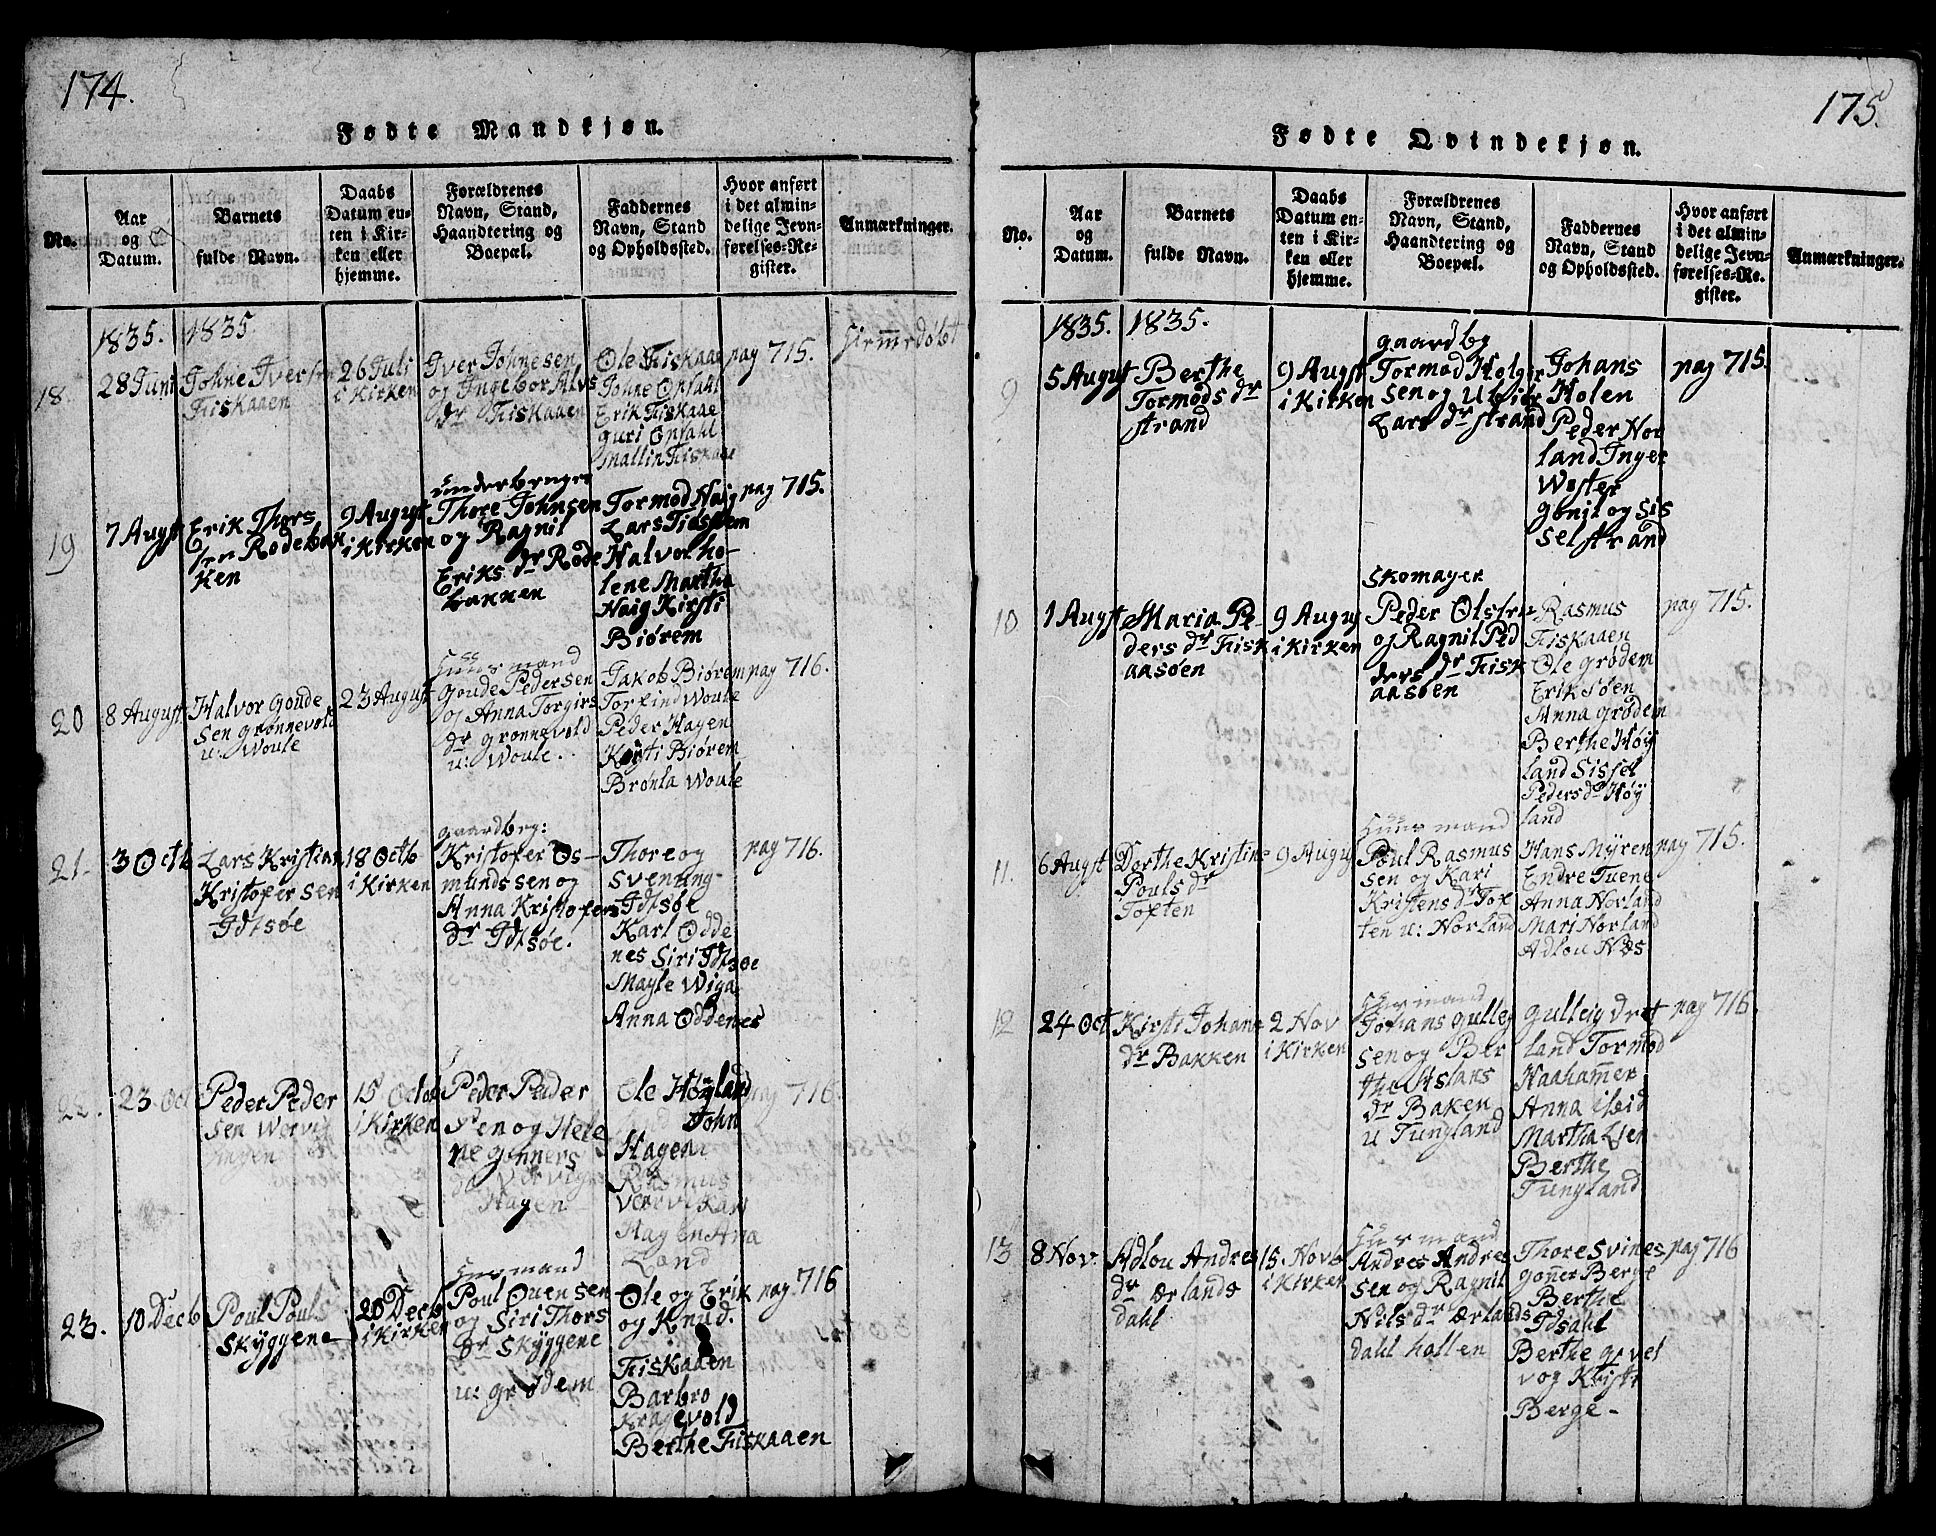 174.
Fødte Mandkjøn.
No.
Aar
og
Datum.
Barnets
fulde Navn.
Daabs
Datum en-
ten i Kir-
ken eller
hjemme.
Forældrenes
Navn, Stand,
Haandtering og
Boepæl.
Faddernes
Navn, Stand
og Opholdssted.
Hvor anført
i det almin-
delige Jevn-
førelses-Re-
gister.
Anmærkninger.
18.
1835.
28 Juni
1835
Johne Iversen
Fiskaaen
26 Juli
i Kirken
Iver Johnesen
og Ingebor Alvs
dr Fiskaaen
Ole Fiskaae
Johne Opsahl
Erik Fiskaae
guri Opsahl
Mallin Fiskaae
pag 715.
Hiemedøbt
19
7 Augst
Erik Thors
sen Rodebak
ken
9 Augst
i Kirken
underbruger
Thore Johnsen
og Ragnil
Eriks dr Rode
bakken
Tormod Haig
Lars Tiøstem
Halvor ho-
lene Martha
Haig Kirsti
Biørem
pag 715.
20
8 August
Halvor Goude
sen grønnevold
u: Woule
23 August
Huusmand
Goude Pedersen
og Anna Torgirs
dr grønnevold
u: Woule.
Jakob Biørem
Torfind Woule
Peder Hagen
Kirsti Biørem
Brønla Woule
pag 716.
21-
3 Octb
Lars Kristian
Kristofersen
Idtsøe
18 Octb
i Kirken
gaardbrg:
Kristofer Os-
mundssen og
Anna Kristofers
dr Idtsøe.
Thore og
Svenung-
Idtsøe
Karl Odde
nes Siri Idtsøe
Mayle Wiga
Anna Oddenes
pag 716.
22.
23 Oct
Peder Peder
sen Wervig
hagen
15 Octob
i Kirken
Peder Peder
sen og Hele
ne Gunners
dr Vervigs
Hagen
Ole Høyland
John
Hagen
Rasmus
Vervi Kari
Hagen Ana
Land
pag 716.
23.
10 Decb
Poul Pouls
Skyggene
20 Decb
i Kirken
Huusmand
Poul Ouensen
og Siri Thors
dr Skyggene
u: grødem
Ole og Erik
og Knud.
Fiskaaen
Barbro
Kragevold
Berthe Fiskaaen
pag 716
175.
Fødte Qvindekjøn.
No.
Aar
og
Datum.
Barnets
fulde Navn.
Daabs
Datum en-
ten i Kir-
ken eller
hjemme.
Forældrenes
Navn, Stand,
Haandtering og
Boepæl.
Faddernes
Navn, Stand
og Opholdssted.
Hvor anført
i det almin-
delige Jevn-
førelses-Re-
gister.
Anmærkninger.
9
1835.
5 Augst
1835.
Berthe
Tormods dr
Strand
9 Augst
i Kirken
gaardbg
Tormod Holger
sen og
Lars dr Strand
Johans
Holen
Peder Nor
land Inger
Wester
Gonil og Sis
sel Strand
pag 715.
10
1 Augst
Maria Pe-
ders dr Fisk
aasøen
9 Augu
i Kirken
Skomager
Peder Olsen
og Ragnil Ped
ders dr Fisk
aasøen
Rasmus
Fiskaaen
Ole Grødem
Erik Søen
Anna Grødem
Berthe Høy
land Sissel
Peders dr Høy
land
pag 715.
11.
6 Augst
Dorthe Kristine
Pouls dr
Toften
9 Augu
Huusmand
Poul Rasmus
sen og Kari
Kristens dr Tof
ten u: Norland
Hans Mÿren
Endre Tuene
Anna Norland
Mari Norland
Adlou Næs
pag 715.
12
24 Oct
Kirsti Johans
dr Bakken
2 Nov
i Kirken
Huusmand
Johans Gulleg
sen og Ber
the Aslaks
dr Baken
u Tungland
Gulleig Dret
land Tormod
Haahamer
Anna Eeid
Martha Lier
Berthe
Tungland
pag 716.
13
8 Nov.
Adlou Andres
dr Ærlands
dahl
15. Novb
i Kirken
Huusmand
Andres Andres
sen og Ragnil
Nils dr Ærlands
dahl hallen
Thore Svines
Goner Berge
Berthe
Idsahl
Berthe
og Kristi
Berge-
pag 716